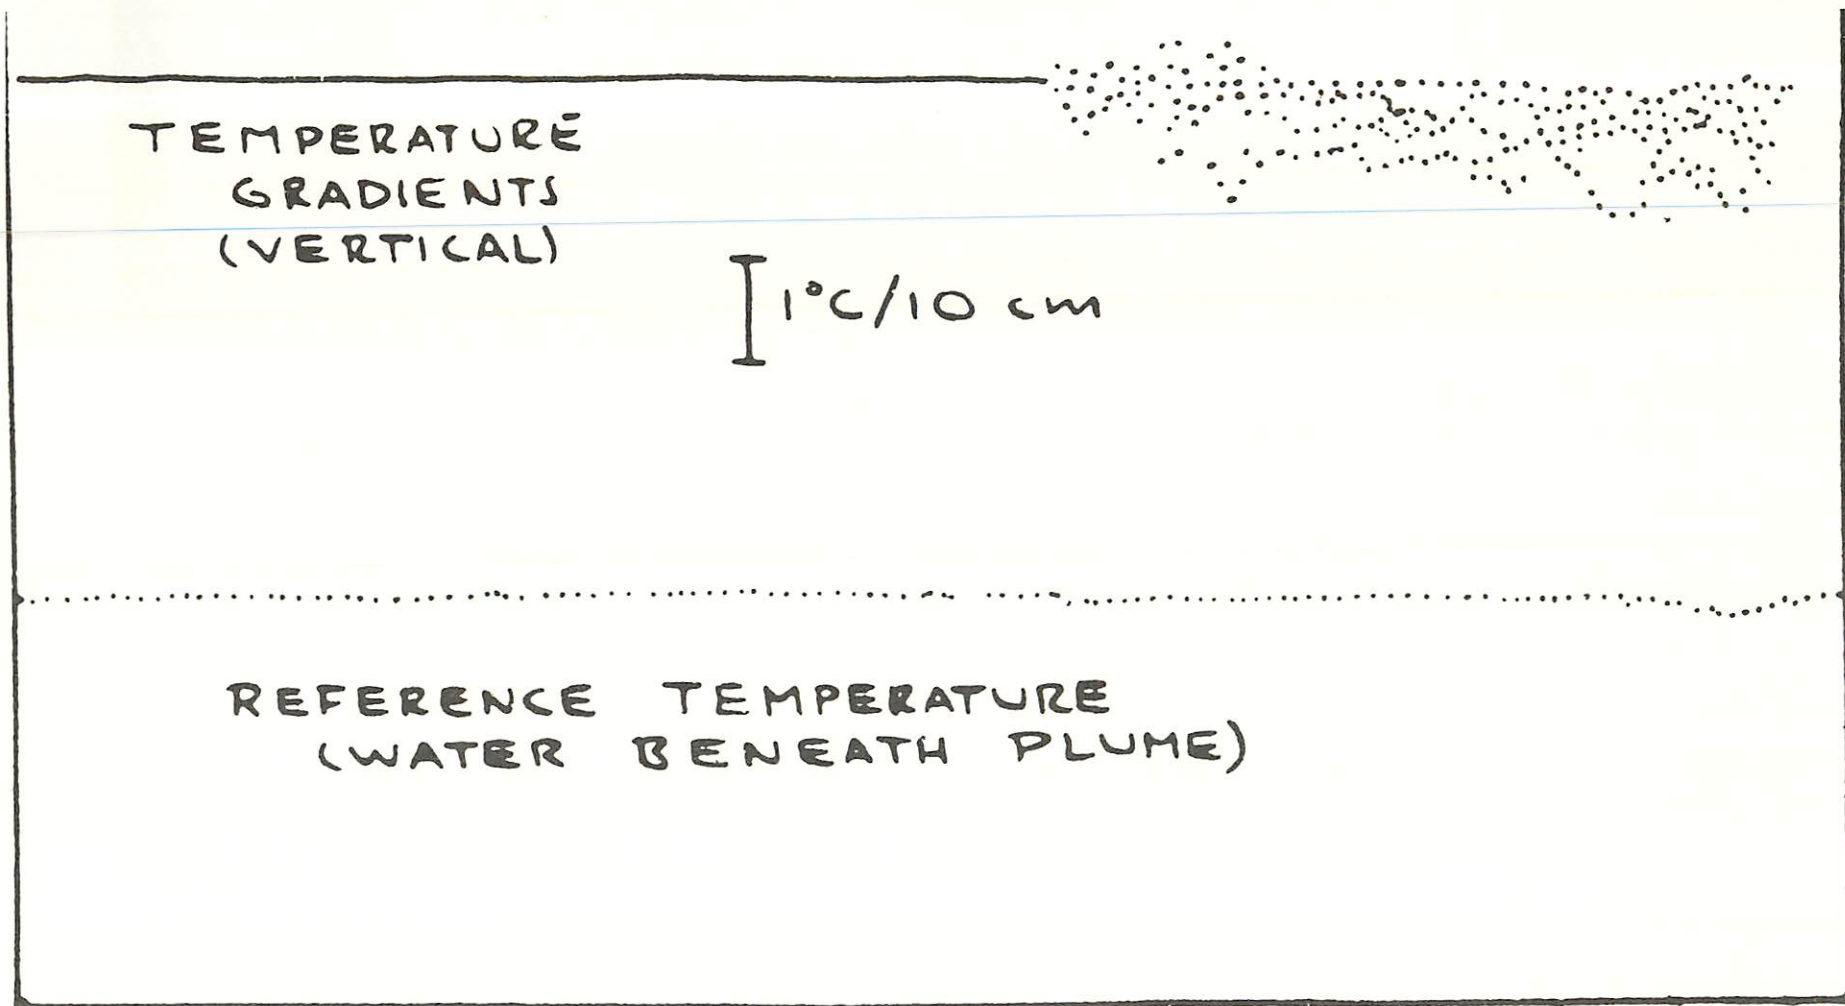 TEMPERATURE
GRADIENTS
(VERTICAL)
1°C/10 cm
REFERENCE TEMPERATURE
(WATER BENEATH PLUME)